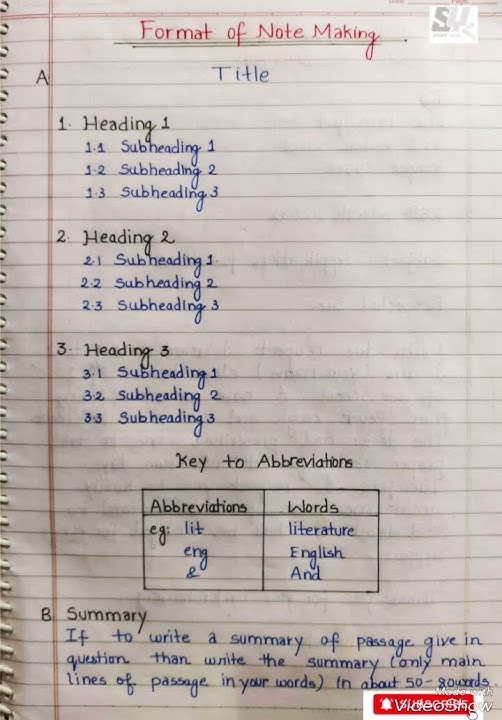 Format of Note Making
A
Title
1. Heading 1
1.1 Subheading 1
1.2 Subheading 2
1.3 Subheading 3
2. Heading 2
2.1 Subheading 1.
2.2 Subheading 2
2.3 Subheading 3
3. Heading 3
3.1 Subheading 1
3.2 Subheading 2
3.3 Subheading 3
Key to Abbreviations
Abbreviations Words
eg: lit literature
eng English
& And
B Summary
If to write a summary of passage give in
question than write the summary (only main
lines of passage in your words) In about 50-80words.
Made with
SUBSCRIBE
VideoShow